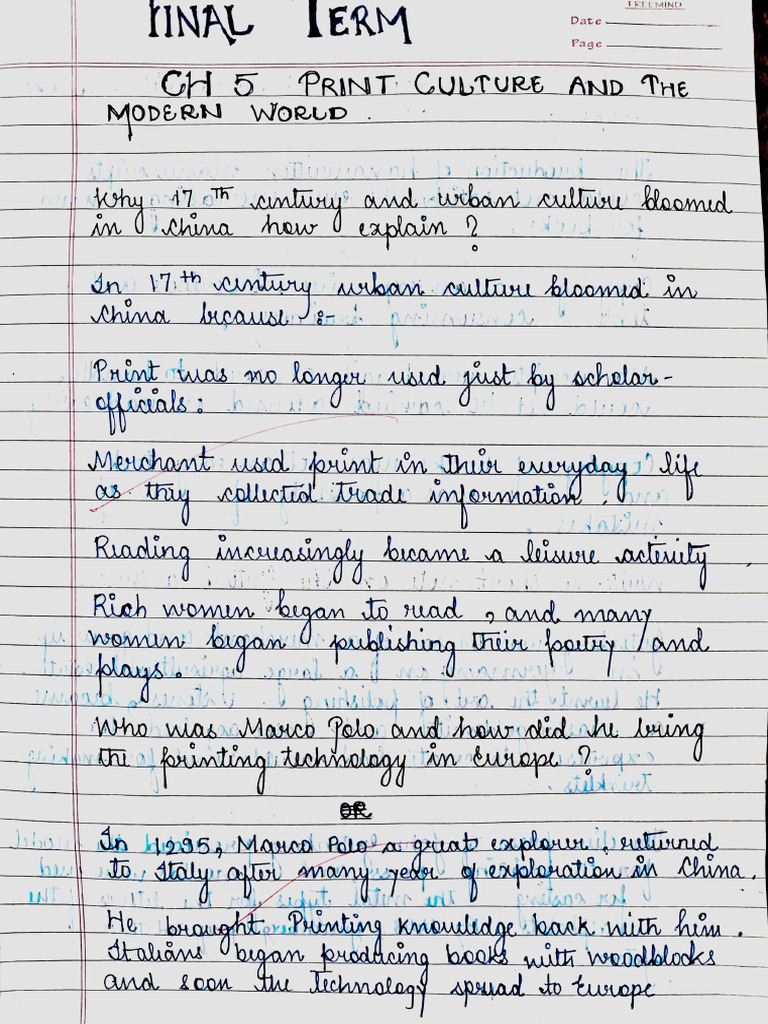 FINAL TERM
FREEMIND
Date
Page
CH 5 PRINT CULTURE AND THE
MODERN WORLD.
Why 17th century and urban culture bloomed
in China how explain?
In 17th century urban culture bloomed in
China because :-
Print was no longer used just by scholar-
officials:
Merchant used print in their everyday life
as they collected trade information.
Reading increasingly became a leisure activity.
Rich women began to read, and many
women began publishing their poetry and
plays.
Who was Marco Polo and how did he bring
the printing technology in Europe?
OR
In 1295, Marco Polo a great explorer, returned
to Italy after many year of exploration in China.
He brought Printing knowledge back with him.
Italians began producing books with woodblocks
and soon the Technology spread to Europe